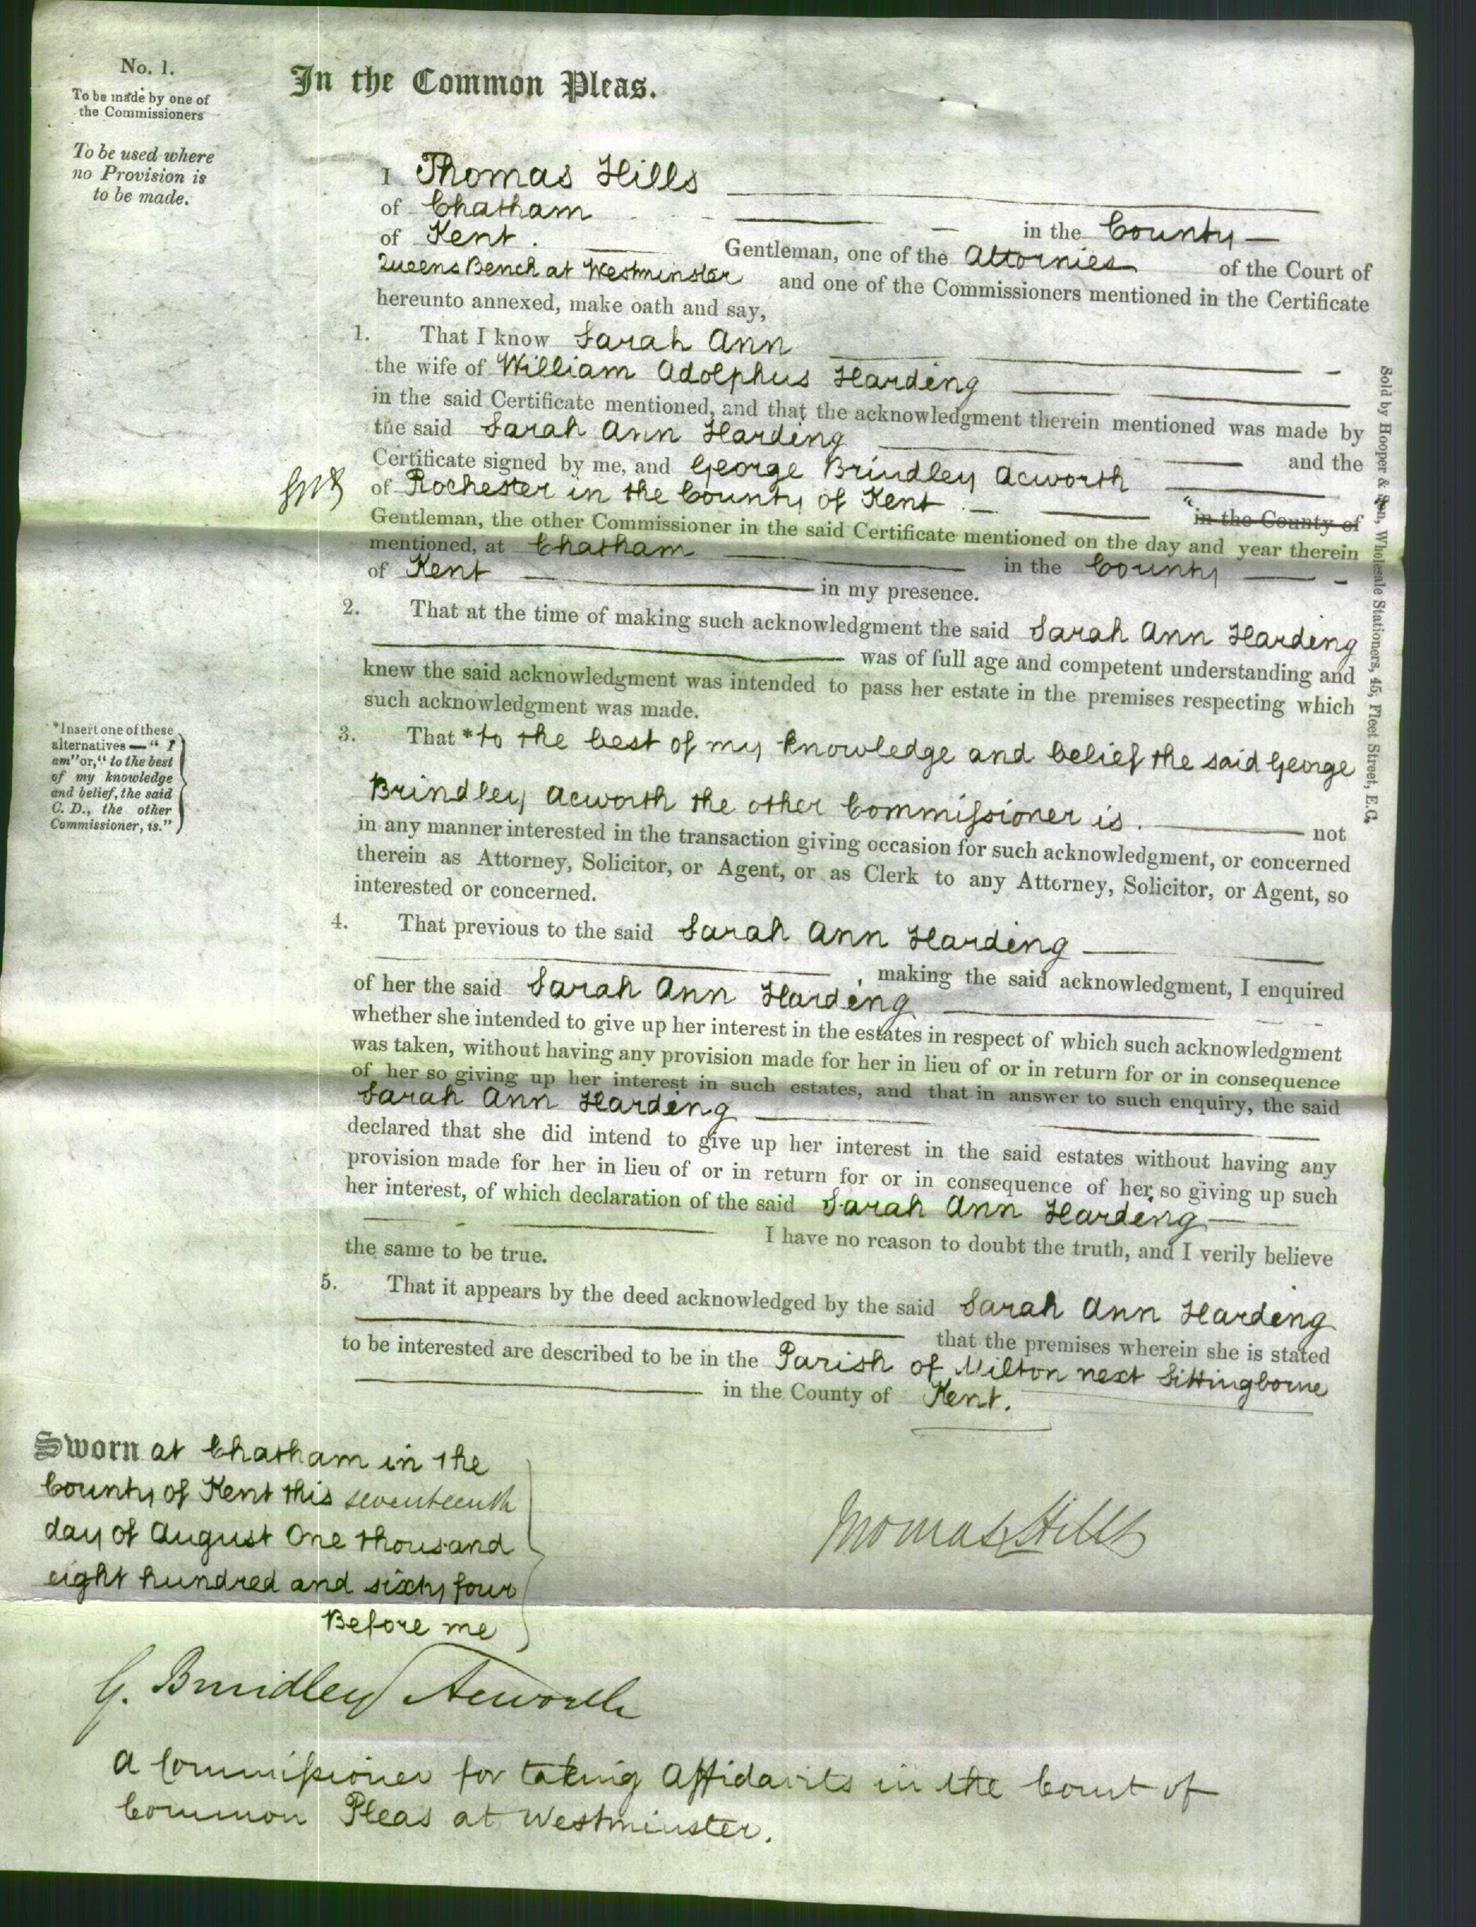 No. 1.
To be made by one of
the Commissioners
To be used where
no Provision is
to be made.
In the Common Pleas.
I Thomas Hills
of Chatham in the County
of Kent. Gentleman, one of the Attornies of the Court of
Queens Bench at Westminster and one of the Commissioners mentioned in the Certificate
hereunto annexed, make oath and say,
1. That I know Sarah Ann
the wife of William Adolphus Harding
in the said Certificate mentioned, and that the acknowledgment therein mentioned was made by
the said Sarah Ann Harding and the
Certificate signed by me, and George Brindley Acworth
of Rochester in the County of Kent "in the County of
Gentleman, the other Commissioner in the said Certificate mentioned on the day and year therein
mentioned, at Chatham in the County
of Kent in my presence.
2. That at the time of making such acknowledgment the said Sarah Ann Harding
was of full age and competent understanding and
knew the said acknowledgment was intended to pass her estate in the premises respecting which
such acknowledgment was made.
*Insert one of these
alternatives — "I
am" or, "to the best
of my knowledge
and belief, the said
C. D., the other
Commissioner, is."
3. That * to the best of my knowledge and belief the said George
Brindley Acworth the other Commissioner is. not
in any manner interested in the transaction giving occasion for such acknowledgment, or concerned
therein as Attorney, Solicitor, or Agent, or as Clerk to any Attorney, Solicitor, or Agent, so
interested or concerned.
4. That previous to the said Sarah Ann Harding
, making the said acknowledgment, I enquired
of her the said Sarah Ann Harding
whether she intended to give up her interest in the estates in respect of which such acknowledgment
was taken, without having any provision made for her in lieu of or in return for or in consequence
of her so giving up her interest in such estates, and that in answer to such enquiry, the said
Sarah Ann Harding
declared that she did intend to give up her interest in the said estates without having any
provision made for her in lieu of or in return for or in consequence of her so giving up such
her interest, of which declaration of the said Sarah Ann Harding
I have no reason to doubt the truth, and I verily believe
the same to be true.
5. That it appears by the deed acknowledged by the said Sarah Ann Harding
that the premises wherein she is stated
to be interested are described to be in the Parish of Milton next Sittingborne
in the County of Kent.
Sworn at Chatham in the
County of Kent this seventeenth
day of August One thousand
eight hundred and sixty four
Before me
Thomas Hills
G. Brindley Acworth
A Commissioner for taking Affidavits in the Court of
Common Pleas at Westminster.
Sold by Hooper & Son, Wholesale Stationers, 45, Fleet Street, E.C.